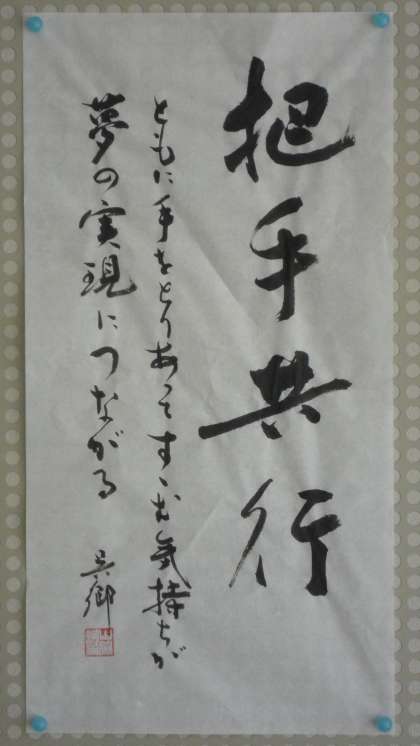 把手共行
ともに手をとりあってすゝむ気持ちが
夢の実現につながる
呉郷